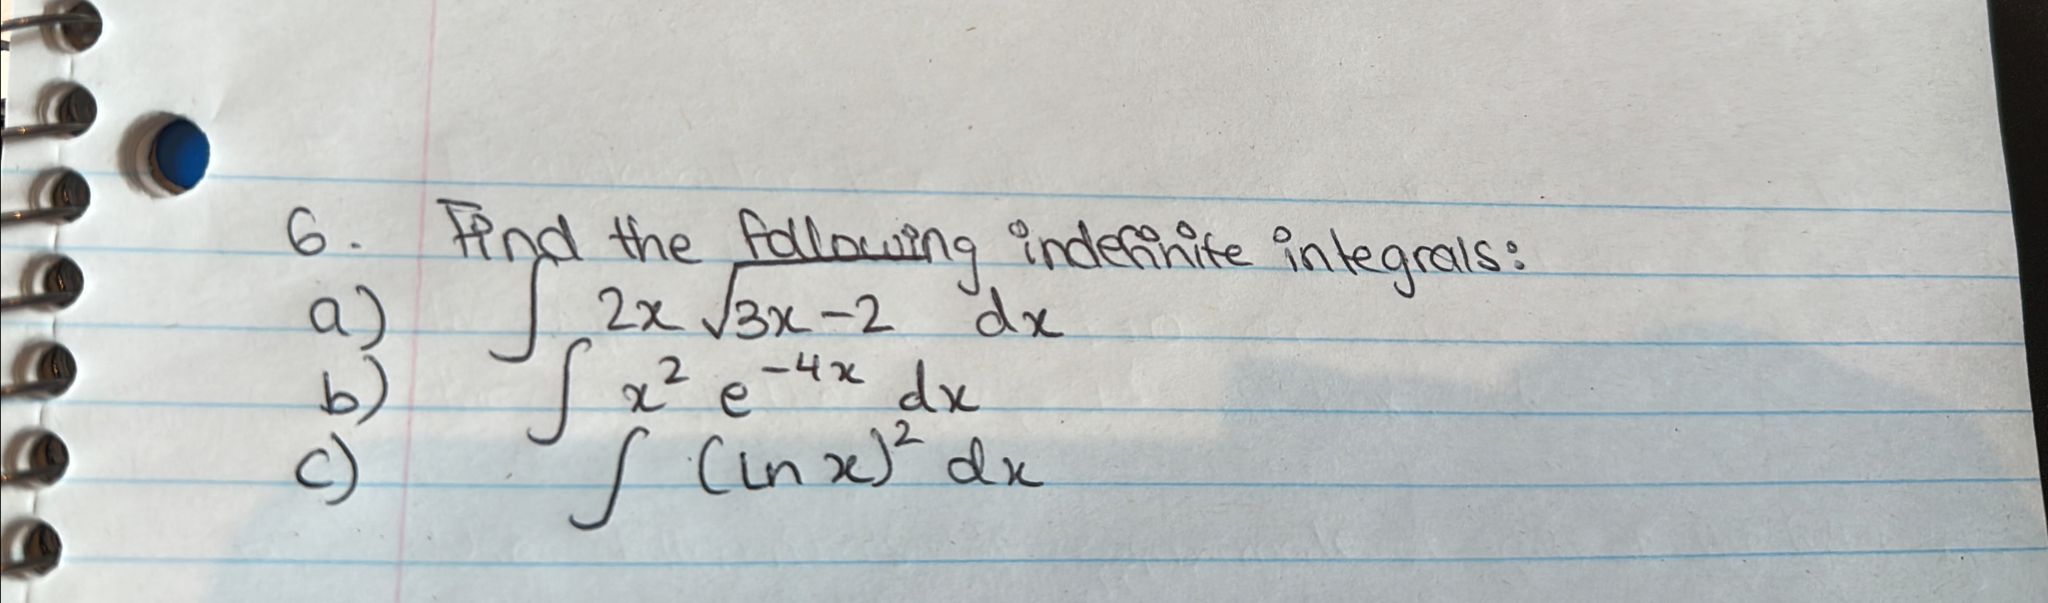 6. Find the following indefinite integrals:
a) ∫ 2x √3x-2 dx
b) ∫ x² e⁻⁴ˣ dx
c) ∫ (ln x)² dx